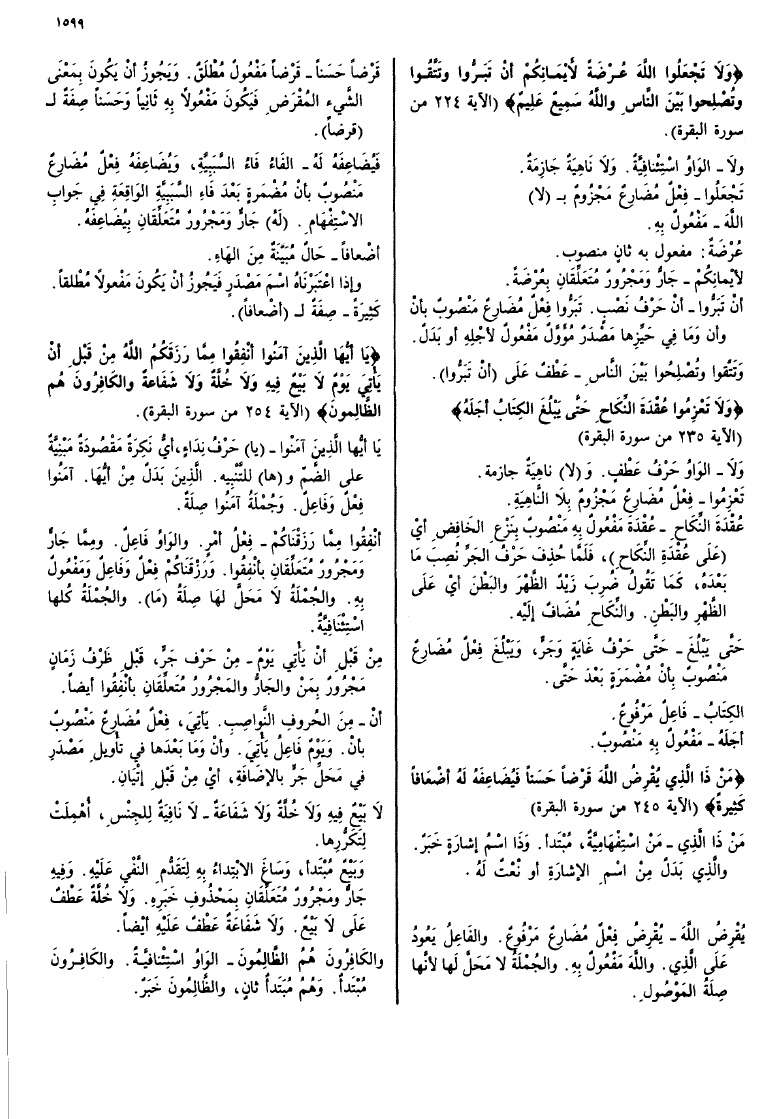 ١٥٩٩
﴿وَلَا تَجْعَلُوا اللَّهَ عُرْضَةً لِأَيْمَانِكُمْ أَنْ تَبَرُّوا وَتَتَّقُوا
وتُصْلِحوا بَيْنَ النَّاسِ واللَّهُ سَمِيعٌ عَلِيمٌ﴾ (الآية ٢٢٤ من
سورة البقرة).
ولا - الوَاوُ اسْتِئْنافِيَّةٌ. وَلَا نَاهِيَةٌ جَازِمَةٌ.
تَجْعَلُوا - فِعْلٌ مُضَارِعٌ مَجْزُومٌ بـ (لا)
اللَّهَ - مَفْعُولٌ بِهِ.
عُرْضَةً: مفعول به ثانٍ منصوب.
لأيْمانِكُمْ - جَارٌّ وَمَجْرُورٌ مُتَعَلِّقَانِ بِعُرْضَةً.
أنْ تَبَرُّوا - أنْ حَرْفُ نَصْبٍ. تَبَرُّوا فِعْلٌ مُضَارِعٌ مَنْصُوبٌ بأنْ
وأن وَمَا فِي حَيِّزِها مَصْدَرٌ مُؤَوَّلٌ مَفْعُولٌ لأجْلِهِ أو بَدَلٌ.
وَتَتَّقوا وتُصْلِحُوا بَيْنَ النَّاسِ - عَطْفٌ عَلَى (أنْ تَبَرُّوا).
﴿وَلَا تَعْزِمُوا عُقْدَةَ النِّكَاحِ حَتَّى يَبْلُغَ الكِتَابُ أجَلَهُ﴾
(الآية ٢٣٥ من سورة البقرة)
وَلَا - الوَاوُ حَرْفُ عَطْفٍ. وَ (لا) ناهِيَةٌ جازمة.
تَعْزِمُوا - فِعْلٌ مُضَارِعٌ مَجْزُومٌ بِلَا النَّاهِيَةِ.
عُقْدَةَ النِّكَاحِ - عُقْدَةَ مَفْعُولٌ بِهِ مَنْصُوبٌ بِنَزْعِ الخَافِضِ أيْ
(عَلَى عُقْدَةِ النِّكَاحِ)، فَلَمَّا حُذِفَ حَرْفُ الجَرِّ نُصِبَ مَا
بَعْدَهُ، كَمَا تَقُولُ ضُرِبَ زَيْدٌ الظَّهْرَ والبَطْنَ أيْ عَلَى
الظَّهْرِ والبَطْنِ. والنِّكَاحِ مُضَافٌ إلَيْهِ.
حَتَّى يَبْلُغَ - حَتَّى حَرْفُ غَايَةٍ وَجَرٍّ، وَيَبْلُغَ فِعْلٌ مُضَارِعٌ
مَنْصُوبٌ بِأنْ مُضْمَرَةٍ بَعْدَ حَتَّى.
الكِتَابُ - فَاعِلٌ مَرْفُوعٌ.
أجَلَهُ - مَفْعُولٌ بِهِ مَنْصُوبٌ.
﴿مَنْ ذَا الَّذِي يُقْرِضُ اللَّهَ قَرْضاً حَسَناً فَيُضَاعِفَهُ لَهُ أضْعَافاً
كَثِيرةً﴾ (الآية ٢٤٥ من سورة البقرة)
مَنْ ذَا الَّذِي - مَنْ اسْتِفْهَامِيَّةٌ، مُبْتَدأ. وَذَا اسْمُ إشارَةٍ خَبَرٌ.
والَّذِي بَدَلٌ مِنْ اسْمِ الإشارَةِ أو نَعْتٌ لَهُ.
يُقْرِضُ اللَّهَ - يُقْرِضُ فِعْلٌ مُضَارِعٌ مَرْفُوعٌ. والفَاعِلُ يَعُودُ
عَلَى الَّذِي. واللَّهَ مَفْعُولٌ بِهِ. والجُمْلَةُ لا مَحَلَّ لَها لأنَّها
صِلَةُ المَوْصُولِ.
قَرْضاً حَسَناً - قَرْضاً مَفْعُولٌ مُطْلَقٌ. وَيَجُوزُ أنْ يَكُونَ بِمَعْنَى
الشَّيءِ المُقْرَضِ فَيَكُونَ مَفْعُولاً بِهِ ثَانِياً وَحَسَناً صِفَةً لـ
(قرضاً).
فَيُضَاعِفَهُ لَهُ - الفَاءُ فَاءُ السَّبَبِيَّةِ، وَيُضَاعِفَهُ فِعْلٌ مُضَارِعٌ
مَنْصُوبٌ بأنْ مُضْمَرَةٍ بَعْدَ فَاءِ السَّبَبِيَّةِ الوَاقِعَةِ فِي جَوابِ
الاسْتِفْهَامِ. (لَهُ) جَارٌّ وَمَجْرُورٌ مُتَعَلِّقَانِ بِيُضَاعِفَهُ.
أضْعافاً - حَالٌ مُبَيِّنَةٌ مِنَ الهَاءِ.
وإذا اعْتَبَرْنَاهُ اسْمَ مَصْدَرٍ فَيَجُوزُ أنْ يَكُونَ مَفْعولاً مُطْلقاً.
كَثِيرَةً - صِفَةٌ لـ (أضْعافاً).
﴿يَا أيُّهَا الَّذِينَ آمَنُوا أنْفِقُوا مِمَّا رَزَقَكُمُ اللَّهُ مِنْ قَبْلِ أنْ
يَأتِيَ يَوْمٌ لَا بَيْعٌ فِيهِ وَلَا خُلَّةٌ وَلَا شَفَاعَةٌ والكَافِرُونَ هُم
الظَّالِمونَ﴾ (الآية ٢٥٤ من سورة البقرة).
يَا أيُّها الَّذِينَ آمَنُوا - (يا) حَرْفُ نِدَاءٍ، أيُّ نَكِرَةٌ مَقْصُودَةٌ مَبْنِيَّةٌ
على الضَّمِّ و (ها) للتَّنْبِيهِ. الَّذِينَ بَدَلٌ مِنْ أيُّهَا. آمَنُوا
فِعْلٌ وَفَاعِلٌ. وَجُمْلَةُ آمَنُوا صِلَةٌ.
أنْفِقُوا مِمَّا رَزَقْنَاكُمْ - فِعْلُ أمْرٍ. والوَاوُ فَاعِلٌ. ومِمَّا جَارٌّ
وَمَجْرُورٌ مُتَعَلِّقَانِ بأنْفِقُوا. وَرَزَقْنَاكُمْ فِعْلٌ وَفَاعِلٌ وَمَفْعُولٌ
بِهِ. والجُمْلَةُ لَا مَحَلَّ لهَا صِلَةُ (مَا). والجُمْلَةُ كُلها
اسْتِئْنَافِيَّةٌ.
مِنْ قَبْلِ أنْ يَأْتِيَ يَوْمٌ - مِنْ حَرْف جَرٍّ، قَبْلِ ظَرْفُ زَمَانٍ
مَجْرُورٌ بِمَنْ والجَارُّ والمَجْرُورُ مُتَعَلِّقَانِ بأنْفِقُوا أيضاً.
أنْ - مِنَ الحُروفِ النَّواصِبِ. يَأتِيَ، فِعْلٌ مُضَارِعٌ مَنْصُوبٌ
بأن. وَيَوْمٌ فاعِلُ يَأْتِيَ. وأنْ وَمَا بَعْدَها في تأويلِ مَصْدَرٍ
في مَحَلِّ جَرٍّ بالإضَافَةِ، أيْ مِنْ قَبْلِ إتْيَانِ.
لَا بَيْعٌ فِيهِ وَلَا خُلَّةٌ وَلَا شَفَاعَةٌ - لَا نَافِيَةٌ لِلجِنْسِ، أُهْمِلَتْ
لِتَكَرُّرِها.
وَبَيْعٌ مُبْتَدأ، وَسَاغَ الابْتِداءُ بِهِ لِتَقَدُّمِ النَّفْيِ عَلَيْهِ. وَفِيهِ
جَارٌّ ومَجْرُورٌ مُتَعَلِّقَانِ بِمَحْذُوفِ خَبَرِهِ. وَلَا خُلَّةٌ عَطْفٌ
عَلَى لَا بَيْعٌ. وَلَا شَفَاعَةٌ عَطْفٌ عَلَيْهِ أيْضاً.
والكَافِرُونَ هُمُ الظَّالِمُونَ - الوَاوُ اسْتِئْنَافِيَّةٌ. والكَافِرُونَ
مُبْتَدأ. وَهُمُ مُبْتَدأ ثانٍ، والظَّالِمُونَ خَبَرٌ.